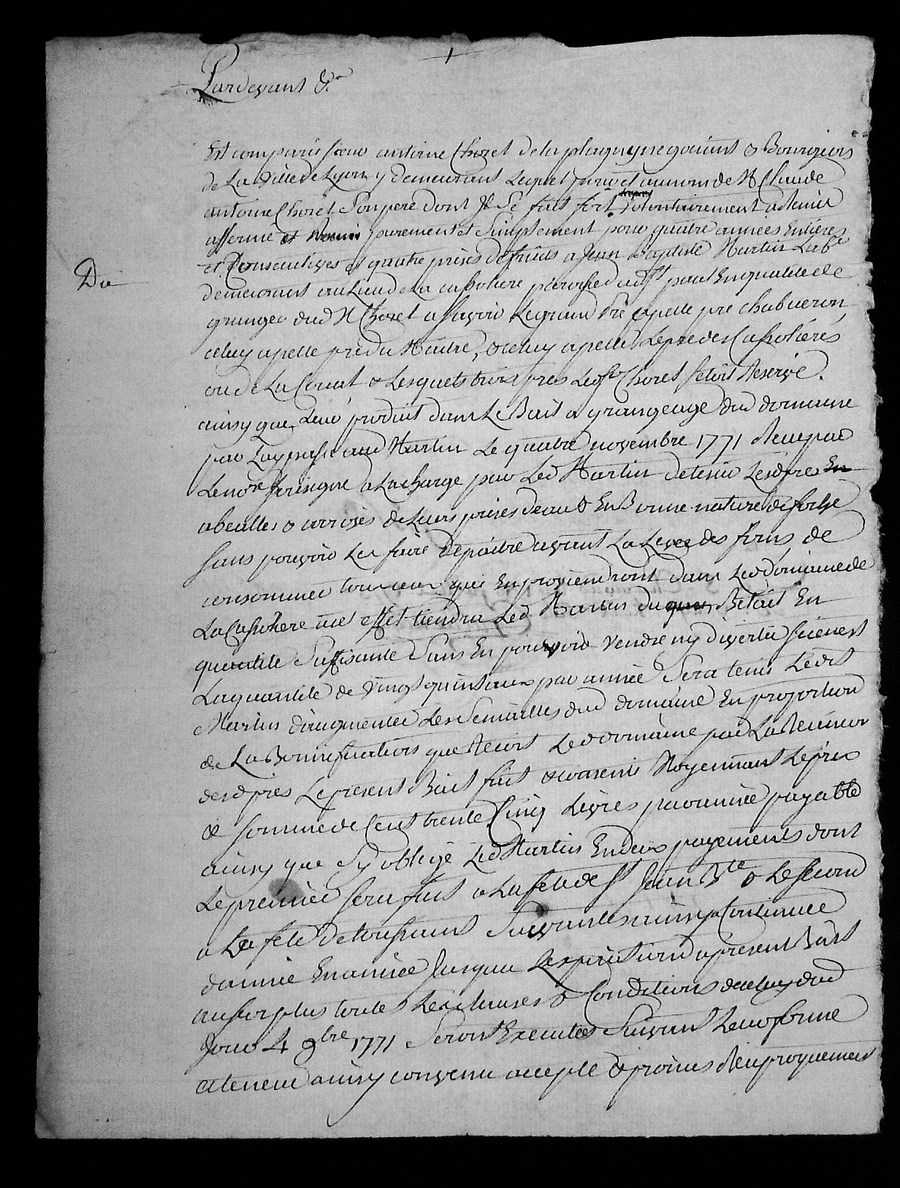 Pardevant &a
Est comparu sieur antoine Choret de la plagny negotiant & Bourgeois
de La Ville de Lyon y demeurant Lequel pour et au nom de Mr Claude
antoine Choret Son pere dont Il Se fait fort, volontairement a tenir
afferme et purement et Simplement pour quatre années Entiéres
et Consecutives et quatre prises de fruits a Jean Baptiste Martin Labr
Du
demeurant au Lieu de La Cassoliere paroisse dud part En qualité de
granger dud Mr Choret a sçavoir Le grand Pré apellé pré chabueron
celuy apellé pré du Maitre, & celuy apellé Le pré des Cassoliéres
ou de La Court & Lesquels trois prés Led Sr Choret s'etoit Reservé
ainsy que produit dans Le Bail a grangeage dud domaine
par Luy passé aud Martin Le quatre novembre 1771 Reçu par
Le nore Soussigné a La charge par Led Martin de tenir Lesd prés En
abeullés & arrosés de Leurs prises deau & En Bonne nature de
sans pouvoir Les faire depaitre avant La Levée des foins de
consommer tous ceux qui En proviendront dans Led domaine de
La Cassoliere a cet effet tiendra Led Martin du Betail En
quantité Suffisante Sans En pouvoir vendre ny divertir
La quantité de Vingt quintaux par année Sera tenu Ledit
Martin d'augmenter Les Semailles dud domaine En proportion
de La Bonnification que Reçoit Led domaine par La Reünion
desd prés Le present Bail fait & consenti Moyennant Le prix
& somme de Cent trente Cinq Livres par année payable
ainsy que S'y oblige Led Martin En deux payements dont
Le premier Sera fait a La fete de St Jean Bte & Le Second
a La fete de toussaint Suivante & ainsy Continuer
dannée En année Jusqua L'expiration du present Bail
au surplus toutes Les Clauses & Conditions de celuy dud
Jour 4 9bre 1771 Seront Executées Suivant Leur forme
et teneur ainsy convenu accepté & promis